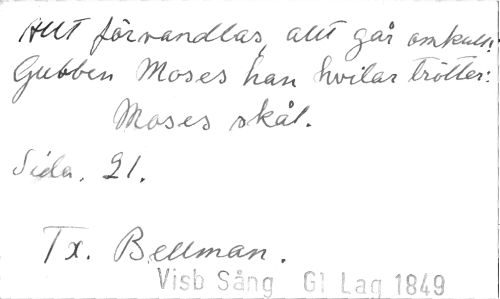 Allt förvandlas, allt går omkull:
Gubben Moses han hvilar trötter:
Moses skål.
Sida. 21.
Tx. Bellman.
Visb Sång Gl Lag 1849